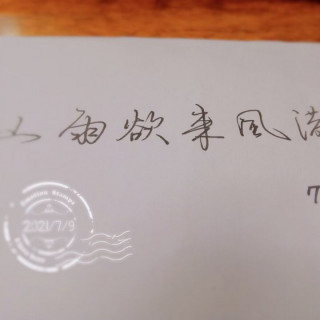 山雨欲来风满
7
2021/7/9